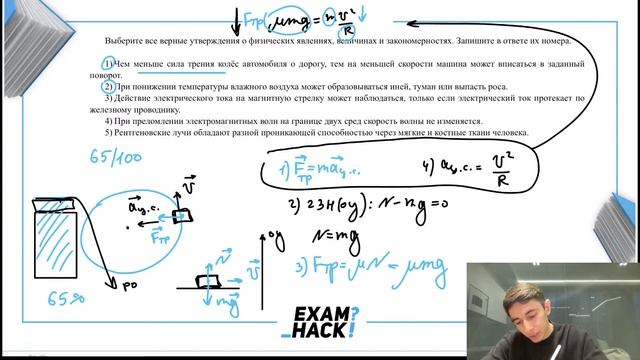 ↓Fтр(μmg) = m v²/R ↓
Выберите все верные утверждения о физических явлениях, величинах и закономерностях. Запишите в ответе их номера.
1) Чем меньше сила трения колёс автомобиля о дорогу, тем на меньшей скорости машина может вписаться в заданный
поворот.
2) При понижении температуры влажного воздуха может образовываться иней, туман или выпасть роса.
3) Действие электрического тока на магнитную стрелку может наблюдаться, только если электрический ток протекает по
железному проводнику.
4) При преломлении электромагнитных волн на границе двух сред скорость волны не изменяется.
5) Рентгеновские лучи обладают разной проникающей способностью через мягкие и костные ткани человека.
65/100
1) Fтр = maц.с.
4) aц.с. = v²/R
v
aц.с.
Fтр
2) 23Н(оу): N - mg = 0
N = mg
3) Fтр = μN = μmg
оу
N
v
mg
65%
PO
EXAM?
_HACK!